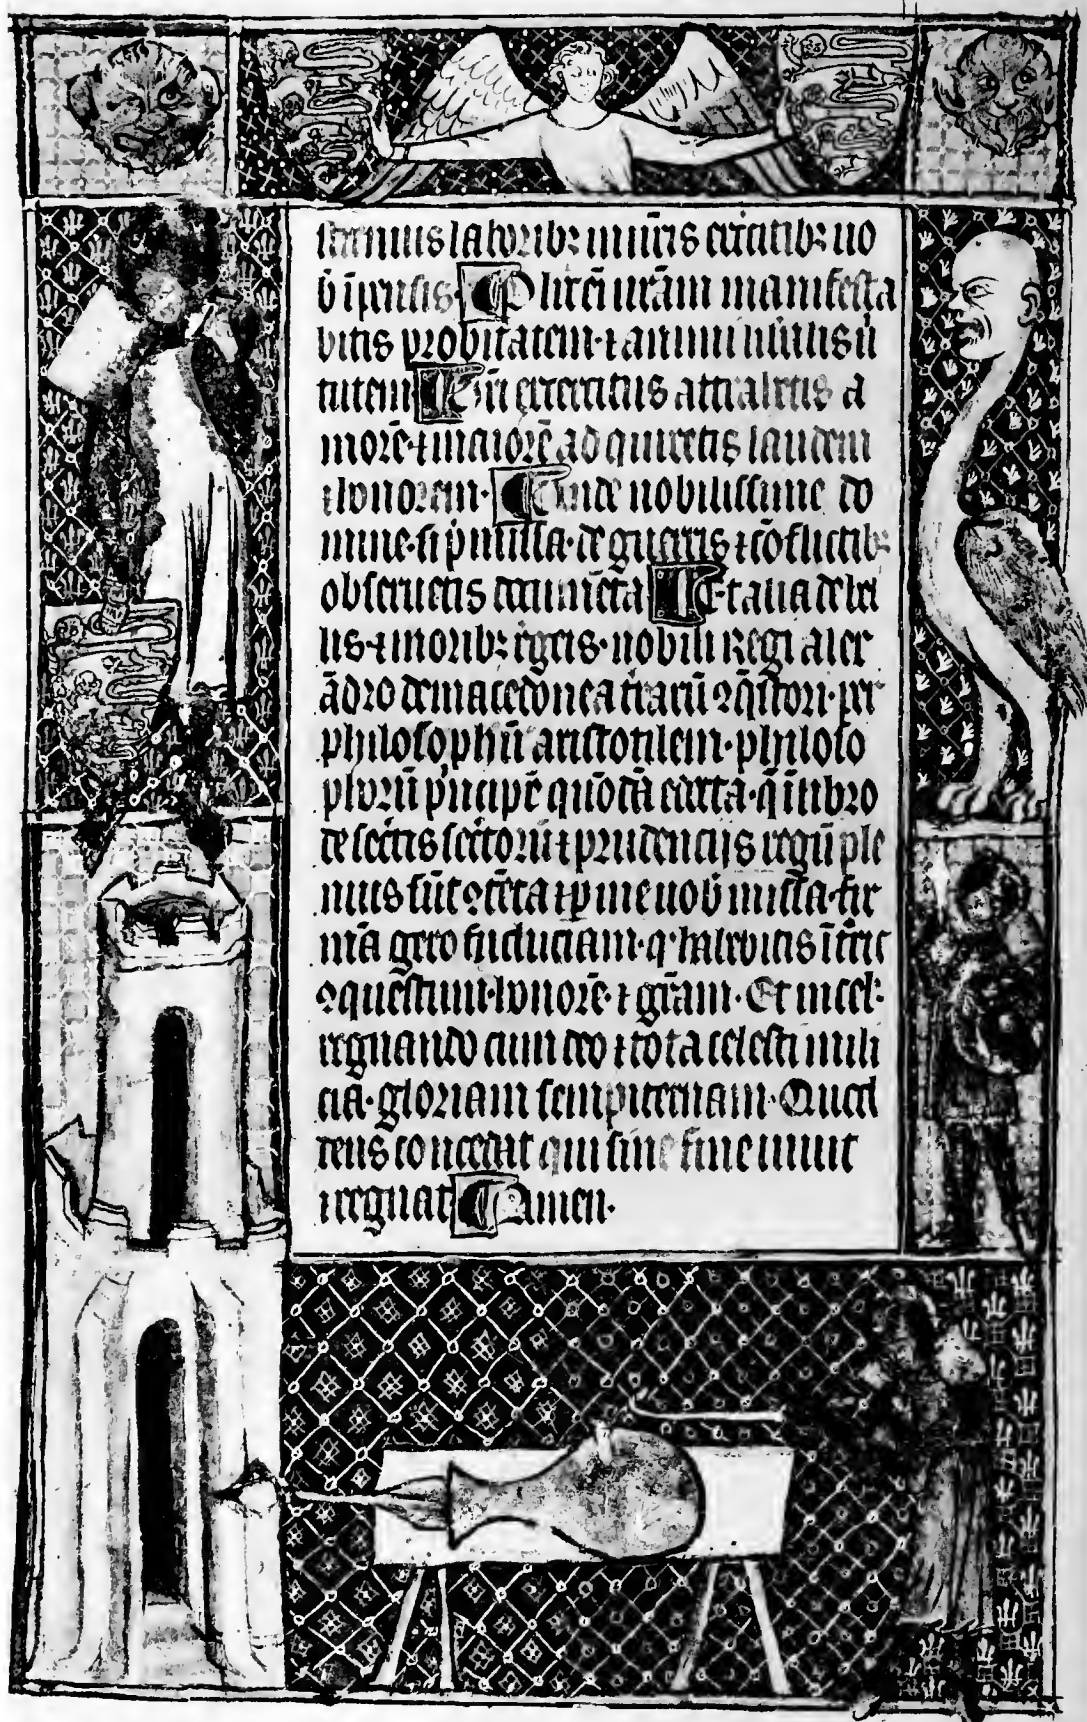 strenuis laborib; mīrīs exercitib; uo
b̄ īpensis. Polīcī ur̄am manifesta
bitis probitatem ⁊ animi uirilis ū
tutem Ur̄i exercitus attraletis a
mor̄e ⁊ maiorē adquiretis laudem
⁊ honorem. Unde nobilissime do
mine si p̄missa de guerris ⁊ cōflictib;
obseruetis documēta Et alia de bel
lis ⁊ morib; regis nobili Regi alex
ādro de macedonea
philosophū aristotilem philoso
phorū p̄ncipē quōdā carta q̄ ī libro
de sec̄tis sec̄torū ⁊ prudencijs regū ple
nius sūt ꝯtēta ⁊ p me uob̄ missa fir
mā gero fiduciam q halebitis ī tr̄is
ꝯquestum honorē ⁊ gr̄am. Et in cel
regnando cum deo ⁊ tota celesti mili
cia gloriam sempiternam. Quod
deus concedat qui sine fine uiuit
⁊ regnat Amen.